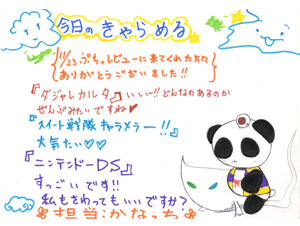 今日のきゃらめる
11/23、ぷちレビューに来てくれた方々
ありがとうございました!!
『ダジャレカルタ』いいー!!どんなのあるのか
ぜんぶみたいですね♥
『スイート戦隊キャラメラー!!』
大気たい♡♡
『ニンテンドーDS』
すっごいです!!
私もさわってもいいですか?
※担当:かなっち※